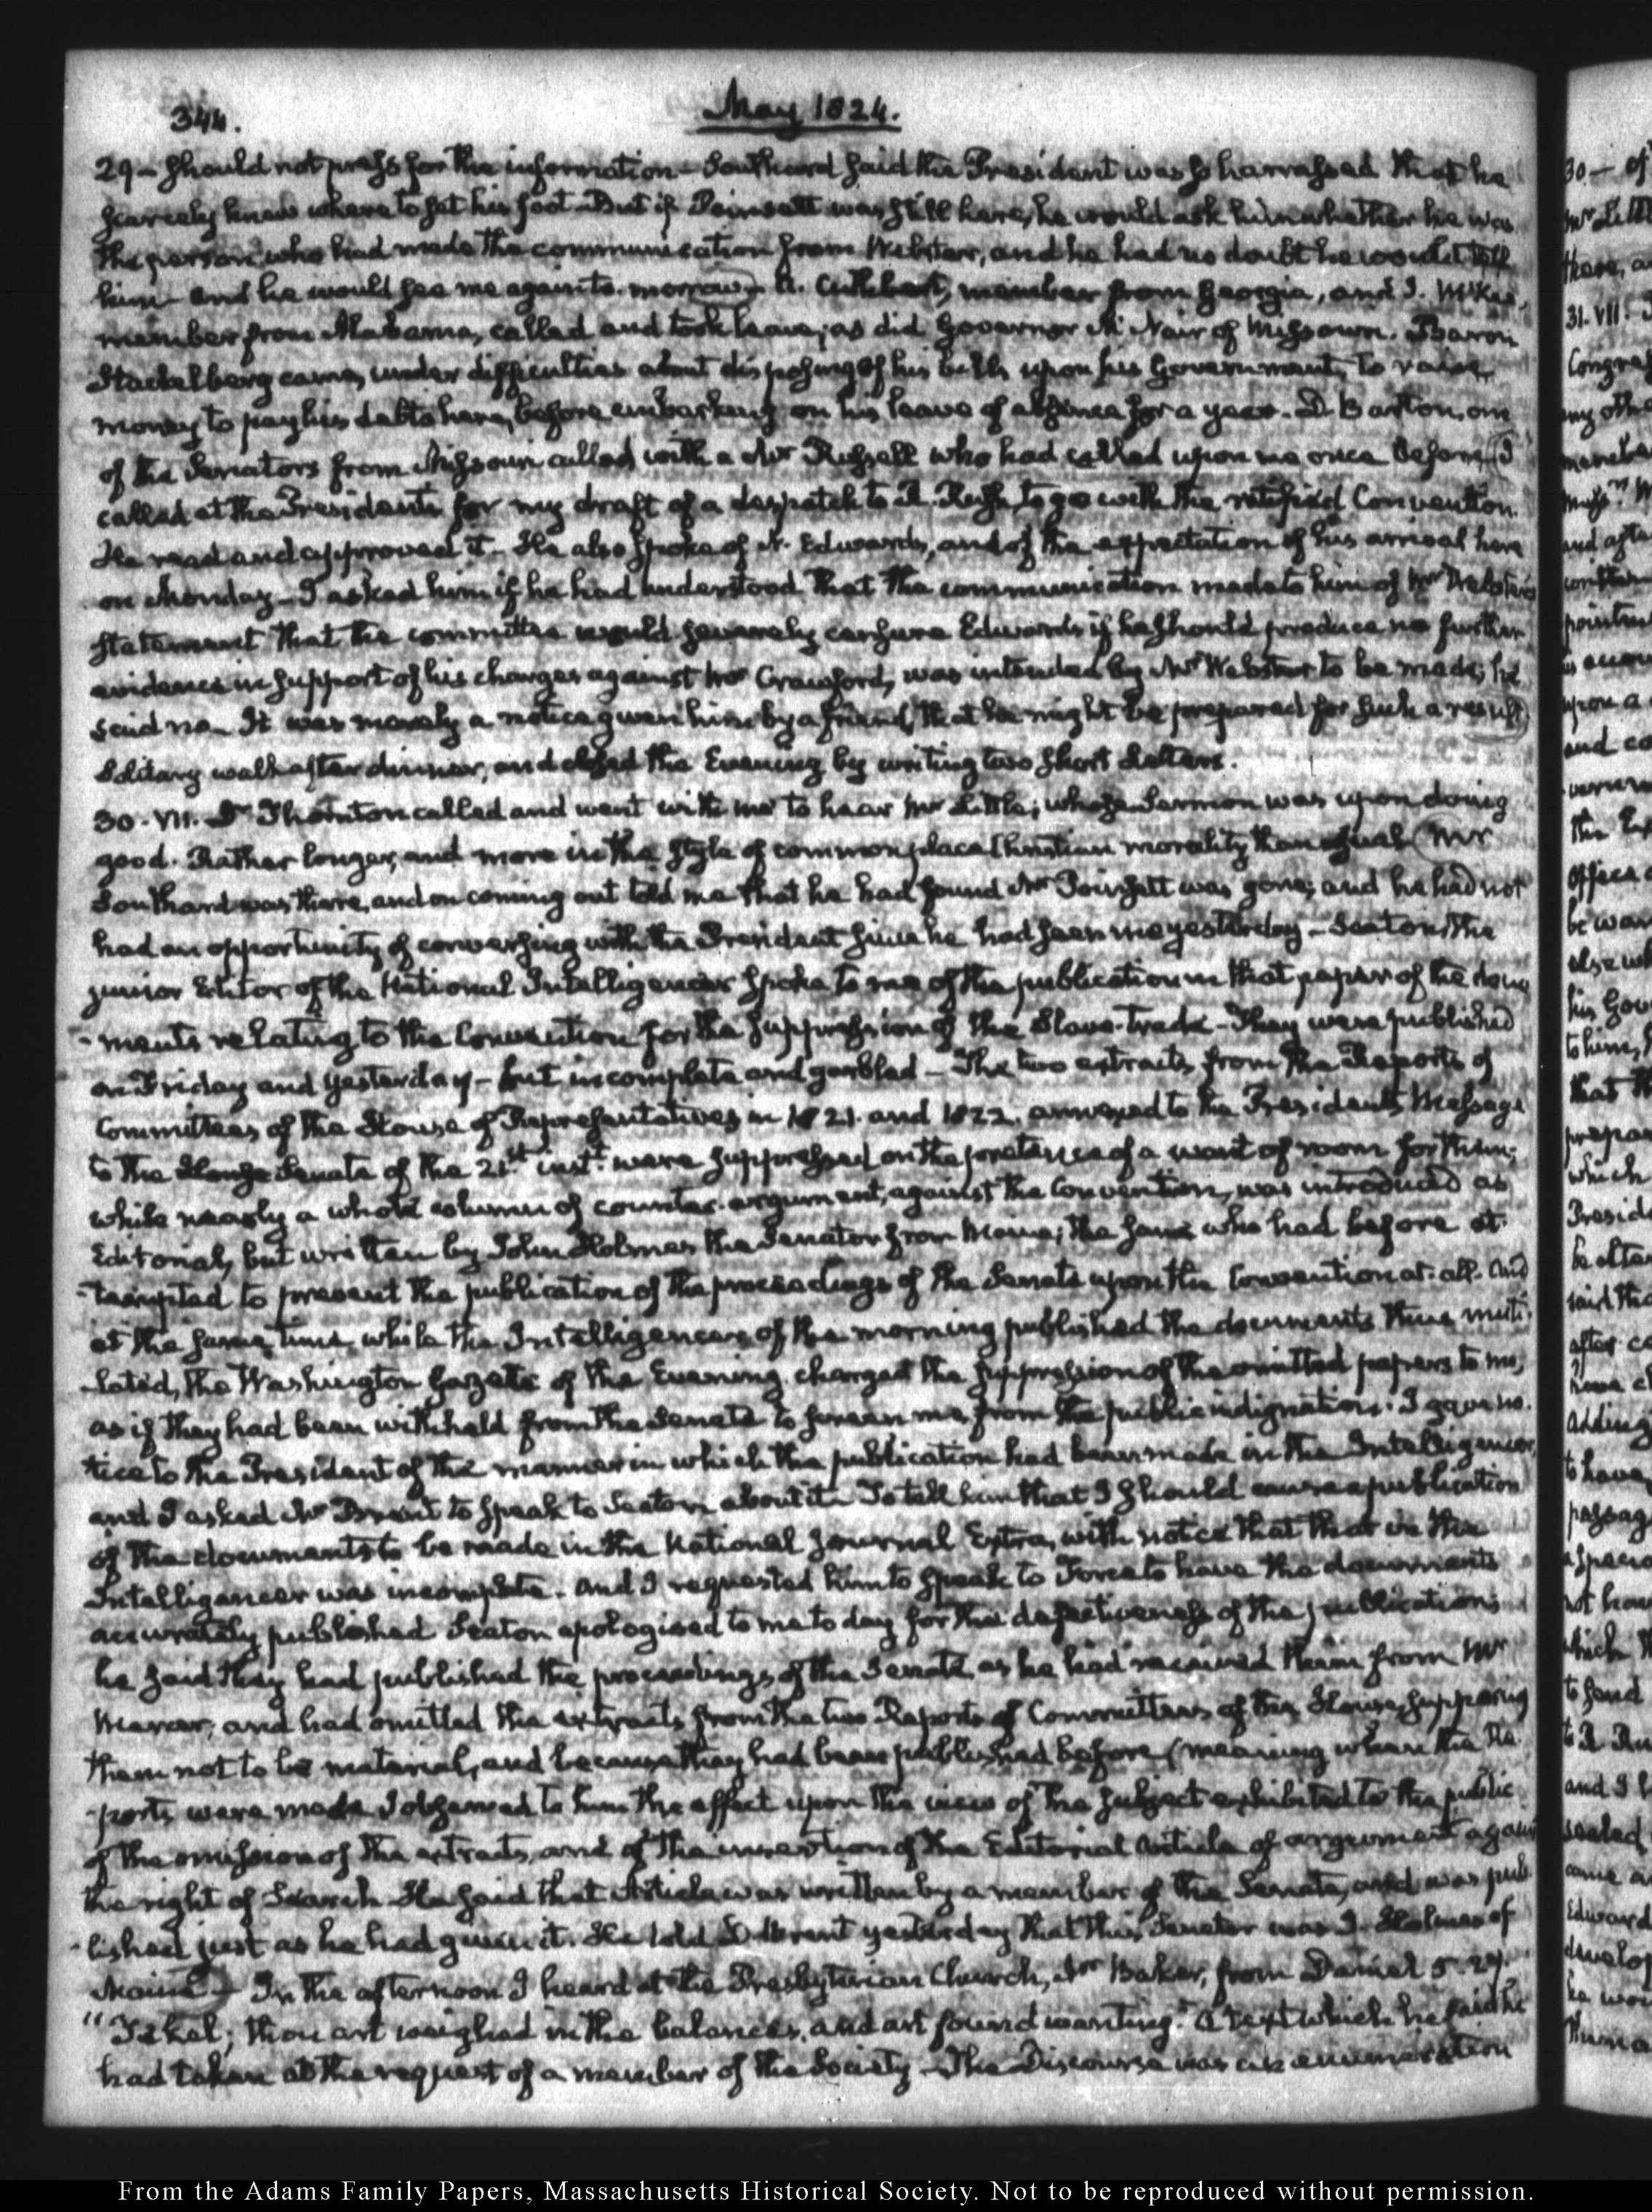 344.
May 1824.
29 – should not press for the information – Southard said the President was so harrassed that he
scarcely knew where to set his foot. But if Poinsett was still here, he would ask him whether he was
the person who had made the communication from Webster, and he had no doubt he would tell
him – and he would see me again to-morrow – A. Cuthbert, member from Georgia, and J. McKee,
member from Alabama, called and took leave; as did Governor McNair of Missouri. Baron
Stackelberg came, under difficulties about disposing of his bills upon his Government, to raise
money to pay his debts here, before embarking on his leave of absence for a year. D. Barton, one
of the Senators from Missouri called, with a Mr Russell who had called upon me once before. I
called at the President's for my draft of a despatch to R. Rush, to go with the ratified Convention.
He read and approved it – He also spoke of N. Edwards, and of the expectation of his arrival here
on Monday – I asked him if he had understood that the communication made to him of Mr Webster's
statement that the committee would severely censure Edwards if he should produce no further
evidence in support of his charges against Mr Crawford, was intended by Mr Webster to be made; he
said no – It was merely a notice given him by a friend, that he might be prepared for such a result
Solitary walk after dinner, and closed the Evening by writing two short Letters.
30. VII. Dr Thornton called and went with me to hear Mr Little; whose Sermon was upon doing
good. Rather longer, and more in the style of common place Christian morality than usual Mr
Southard was there, and on coming out told me that he had found Mr Poinsett was gone; and he had not
had an opportunity of conversing with the President since he had seen me yesterday – Seaton, the
junior Editor of the National Intelligencer spoke to me of the publication in that paper of the docu
-ments relating to the Convention for the suppression of the Slave-trade – They were published
on Friday and yesterday – but incomplete and garbled – The two extracts from the Reports of
Committees of the House of Representatives in 1821. and 1822. annexed to the President's Message
to the House Senate of the 21st inst. were suppressed on the pretence of a want of room for them;
while nearly a whole column of counter-argument, against the Convention, was introduced as
Editorial, but written by John Holmes the Senator from Maine; the same who had before at-
-tempted to prevent the publication of the proceedings of the Senate upon the Convention at all. And
at the same time, while the Intelligencer of the morning published the documents thus muti-
-lated, the Washington Gazette of the Evening, charged the suppression of the omitted papers to me,
as if they had been withheld from the Senate to screen me from the public indignation. I gave no-
tice to the President of the manner in which the publication had been made in the Intelligencer
and I asked Mr Brent to speak to Seaton about it. To tell him that I should cause a publication
of the documents to be made in the National Journal Extra, with notice that that in the
Intelligencer was incomplete. And I requested him to speak to Force to have the documents
accurately published Seaton apologised to me to day for the defectiveness of the publication;
he said they had published the proceedings of the Senate as he had received them from Mr
Mercer; and had omitted the extracts from the two Reports of Committees of the House, supposing
them not to be material, and because they had been published before (meaning when the Re-
-ports were made. I observed to him the effect upon the view of the subject exhibited to the public
of the omission of the extracts, and of the insertion of the Editorial article of argument against
the right of Search. He said that Article was written by a member of the Senate, and was pub-
-lished just as he had given it. He told D. Brent yesterday that this Senator was J. Holmes of
Maine – In the afternoon I heard at the Presbyterian Church, Mr Baker, from Daniel 5. 27.
"Tekel; thou art weighed in the balances, and art found wanting." A text which he said he
had taken at the request of a member of the Society – The Discourse was an enumeration
From the Adams Family Papers, Massachusetts Historical Society. Not to be reproduced without permission.